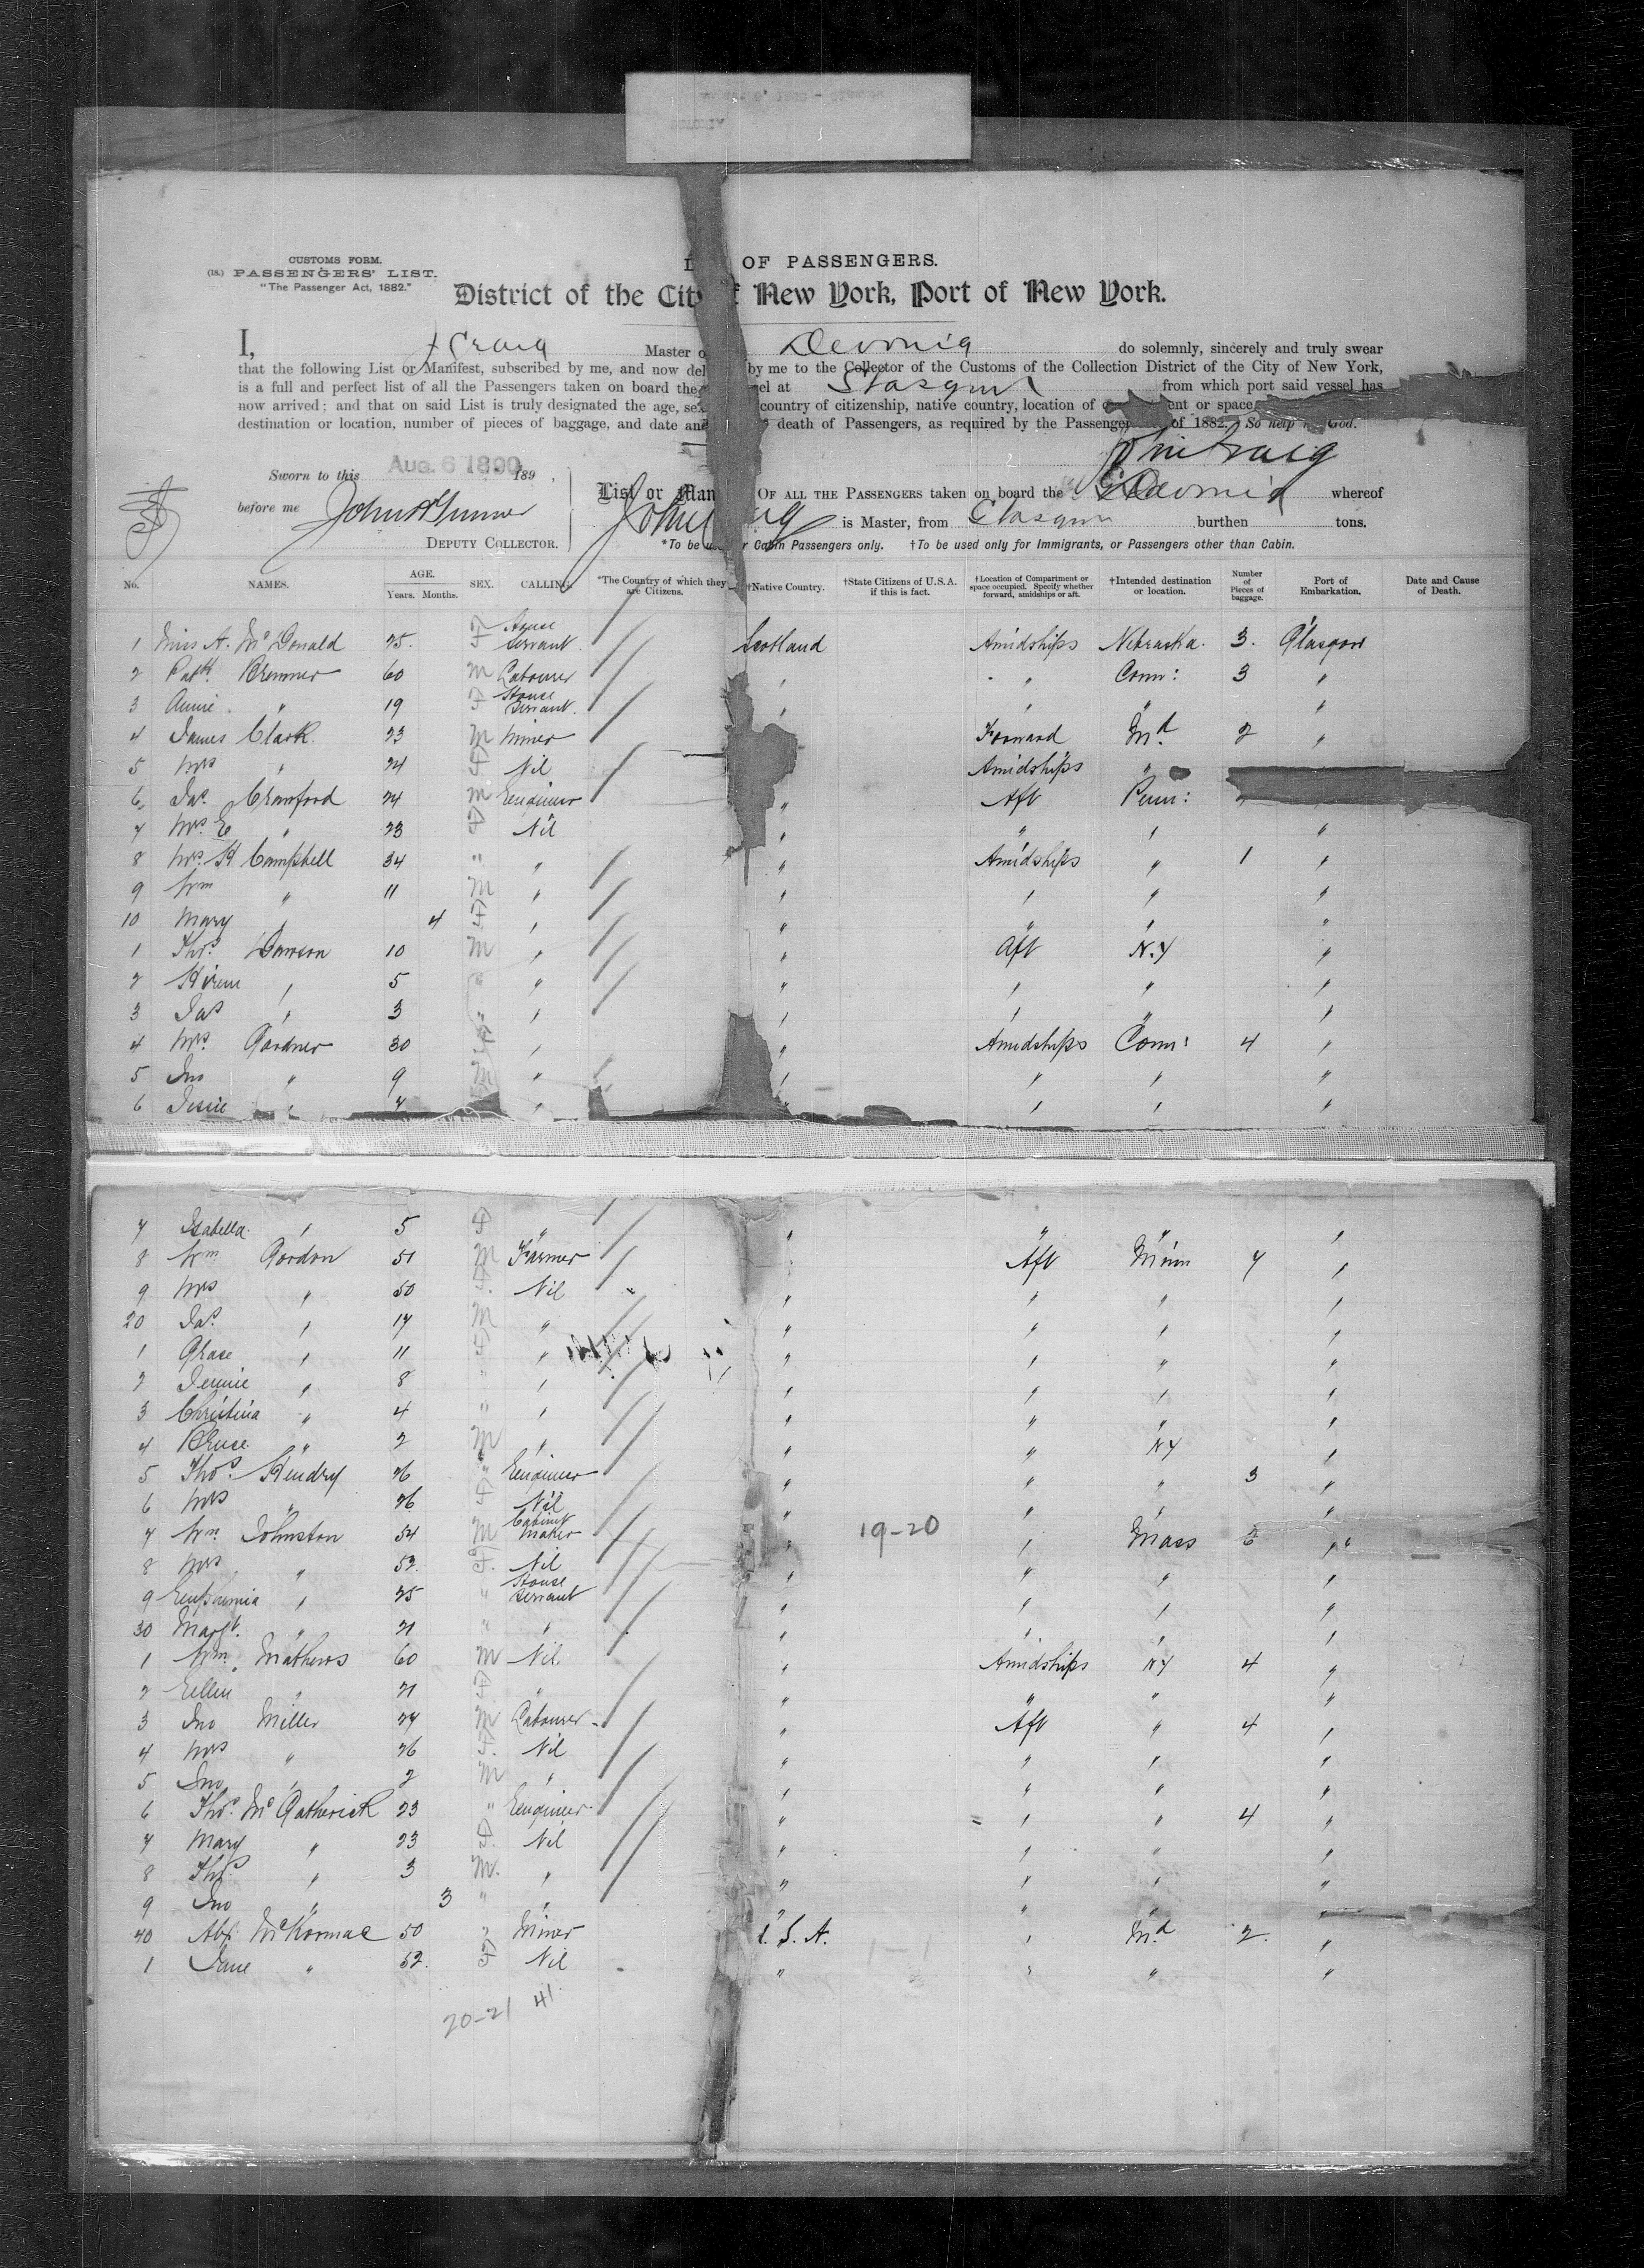 CUSTOMS FORM.
(18.) PASSENGERS' LIST.
"The Passenger Act, 1882."
OF PASSENGERS.
District of the City of New York, Port of New York.
I, J Craig Master o Devonia do solemnly, sincerely and truly swear
that the following List or Manifest, subscribed by me, and now del by me to the Collector of the Customs of the Collection District of the City of New York,
is a full and perfect list of all the Passengers taken on board the sel at Glasgow from which port said vessel has
now arrived; and that on said List is truly designated the age, se country of citizenship, native country, location of ent or space
destination or location, number of pieces of baggage, and date and death of Passengers, as required by the Passenger of 1882. So help God.
John Craig
Sworn to this Aug. 6 1890 189 ,
before me
DEPUTY COLLECTOR.
List or Man OF ALL THE PASSENGERS taken on board the Devonia whereof
John Craig is Master, from Glasgow burthen tons.
*To be us r Cabin Passengers only. †To be used only for Immigrants, or Passengers other than Cabin.
No. NAMES. AGE. Years. Months. SEX. CALLING. *The Country of which they are Citizens. †Native Country. †State Citizens of U.S.A. if this is fact. †Location of Compartment or space occupied. Specify whether forward, amidships or aft. †Intended destination or location. Number of Pieces of baggage. Port of Embarkation. Date and Cause of Death.
1 Miss A. McDonald 25 F House Servant Scotland Amidships Nebraska 3. Glasgow
2 Patk. Bremner 60 M Labourer " " Conn: 3 "
3 Annie " 19 F House Servant " " " "
4 James Clark 23 M Miner Forward Md 2 "
5 Mrs " 24 F Nil Amidships "
6 Jas. Crawford 24 M Engineer " Aft Penn:
7 Mrs E " 23 F Nil " " " "
8 Mrs. H Campbell 34 " " " Amidships " 1 "
9 Wm " 11 M " " " " "
10 Mary " 4 F " " " " "
1 Thos. Dawson 10 M " " Aft N.Y "
2 Hiram " 5 " " " " " "
3 Jas " 3 " " " " " "
4 Mrs. Gardner 30 F " " Amidships Conn: 4 "
5 Jno " 9 M " " " " "
6 Jessie " 7 " " " " "
7 Isabella " 5 F " " " " "
8 Wm Gordon 51 M Farmer " Aft Minn 7 "
9 Mrs " 50 F. Nil " " " "
20 Jas. " 17 M " " " " "
1 Grace " 11 F " " " " "
2 Jennie " 8 " " " " " "
3 Christina " 4 " " " " " "
4 Bruce " 2 M " " " N Y "
5 Thos. Hendry 26 " Engineer " " " 3 "
6 Mrs " 26 F Nil " " " "
7 Wm. Johnston 54 M Cabinet Maker " 19-20 " Mass "
8 Mrs " 52. F. Nil " " " "
9 Euphemia " 25 " House Servant " " " "
30 Margt. " 21 " " " " " "
1 Wm. Mathews 60 M Nil " Amidships N Y 4 "
2 Ellen " 21 F " " " " "
3 Jno Miller 27 M Labourer " Aft " 4 "
4 Mrs " 26 F. Nil " " " "
5 Jno " 2 M " " " " "
6 Thos. McGatherick 23 " Engineer " " " 4 "
7 Mary " 23 F. Nil " " " "
8 Thos. " 3 M. " " " " "
9 Jno " 3 " " " " " "
40 McKormac 50 " Miner U. S. A. " Md 2. "
1 Jane " 52. F Nil " " " "
20-21 41.